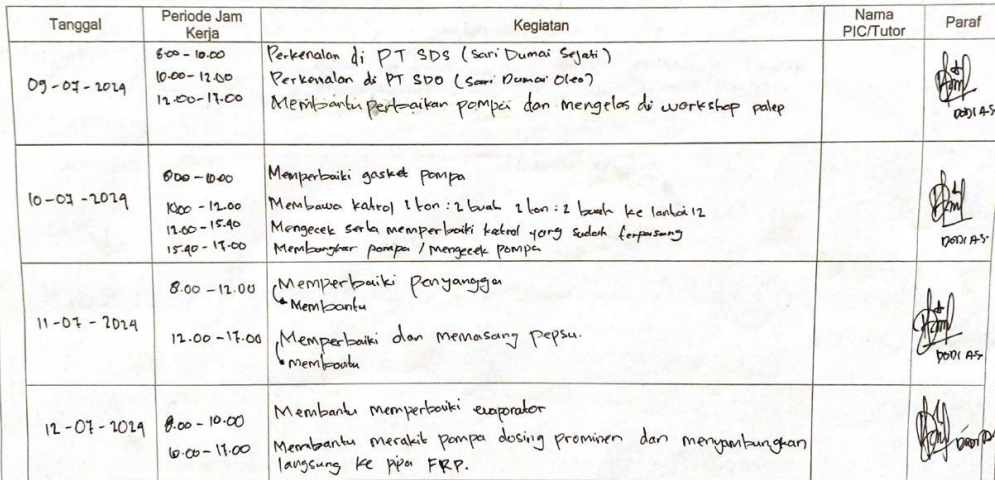 Tanggal Periode Jam Kerja Kegiatan Nama PIC/Tutor Paraf
09-07-2024
8.00 - 10.00 Perkenalan di PT SDS (Sari Dumai Sejati)
10.00 - 12.00 Perkenalan di PT SDO (Sari Dumai Oleo)
12.00 - 17.00 Membantu perbaikan pompa dan mengelas di workshop palep
DODI A.S
10-07-2024
8.00 - 10.00 Memperbaiki gasket pompa
10.00 - 12.00 Membawa katrol 1 ton : 2 buah 2 ton : 2 buah ke lantai 12
12.00 - 15.40 Mengecek serta memperbaiki katrol yang sudah terpasang
15.40 - 17.00 Membongkar pompa / mengecek pompa
DODI AS
11-07-2024
8.00 - 12.00 Memperbaiki penyangga
Membantu
12.00 - 17.00 Memperbaiki dan memasang pepsu.
membantu
DODI AS
12-07-2024
8.00 - 10.00 Membantu memperbaiki evaporator
10.00 - 17.00 Membantu merakit pompa dosing prominen dan menyambungkan
langsung ke pipa FRP.